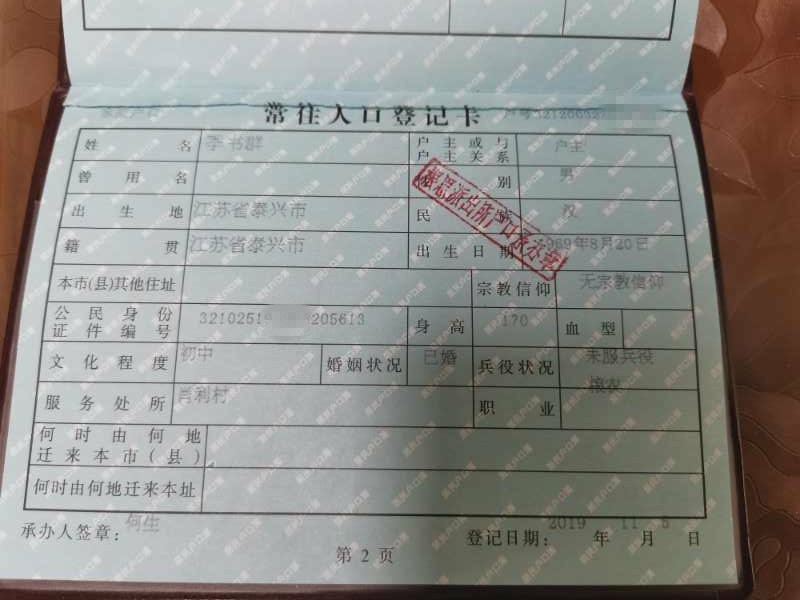 常住人口登记卡
户号
姓 名 李书群 户主或与户主关系 户主
曾用名 别 男
出生地 江苏省泰兴市 民 族 汉
籍 贯 江苏省泰兴市 出生日期 1969年8月20日
本市(县)其他住址 宗教信仰 无宗教信仰
公民身份证件编号 3210251 205613 身高 170 血型
文化程度 初中 婚姻状况 已婚 兵役状况 未服兵役
服务处所 肖利村 职 业 粮农
何时由何地迁来本市(县)
何时由何地迁来本址
承办人签章: 何生 登记日期: 2019 年 11 月 5 日
第 2 页